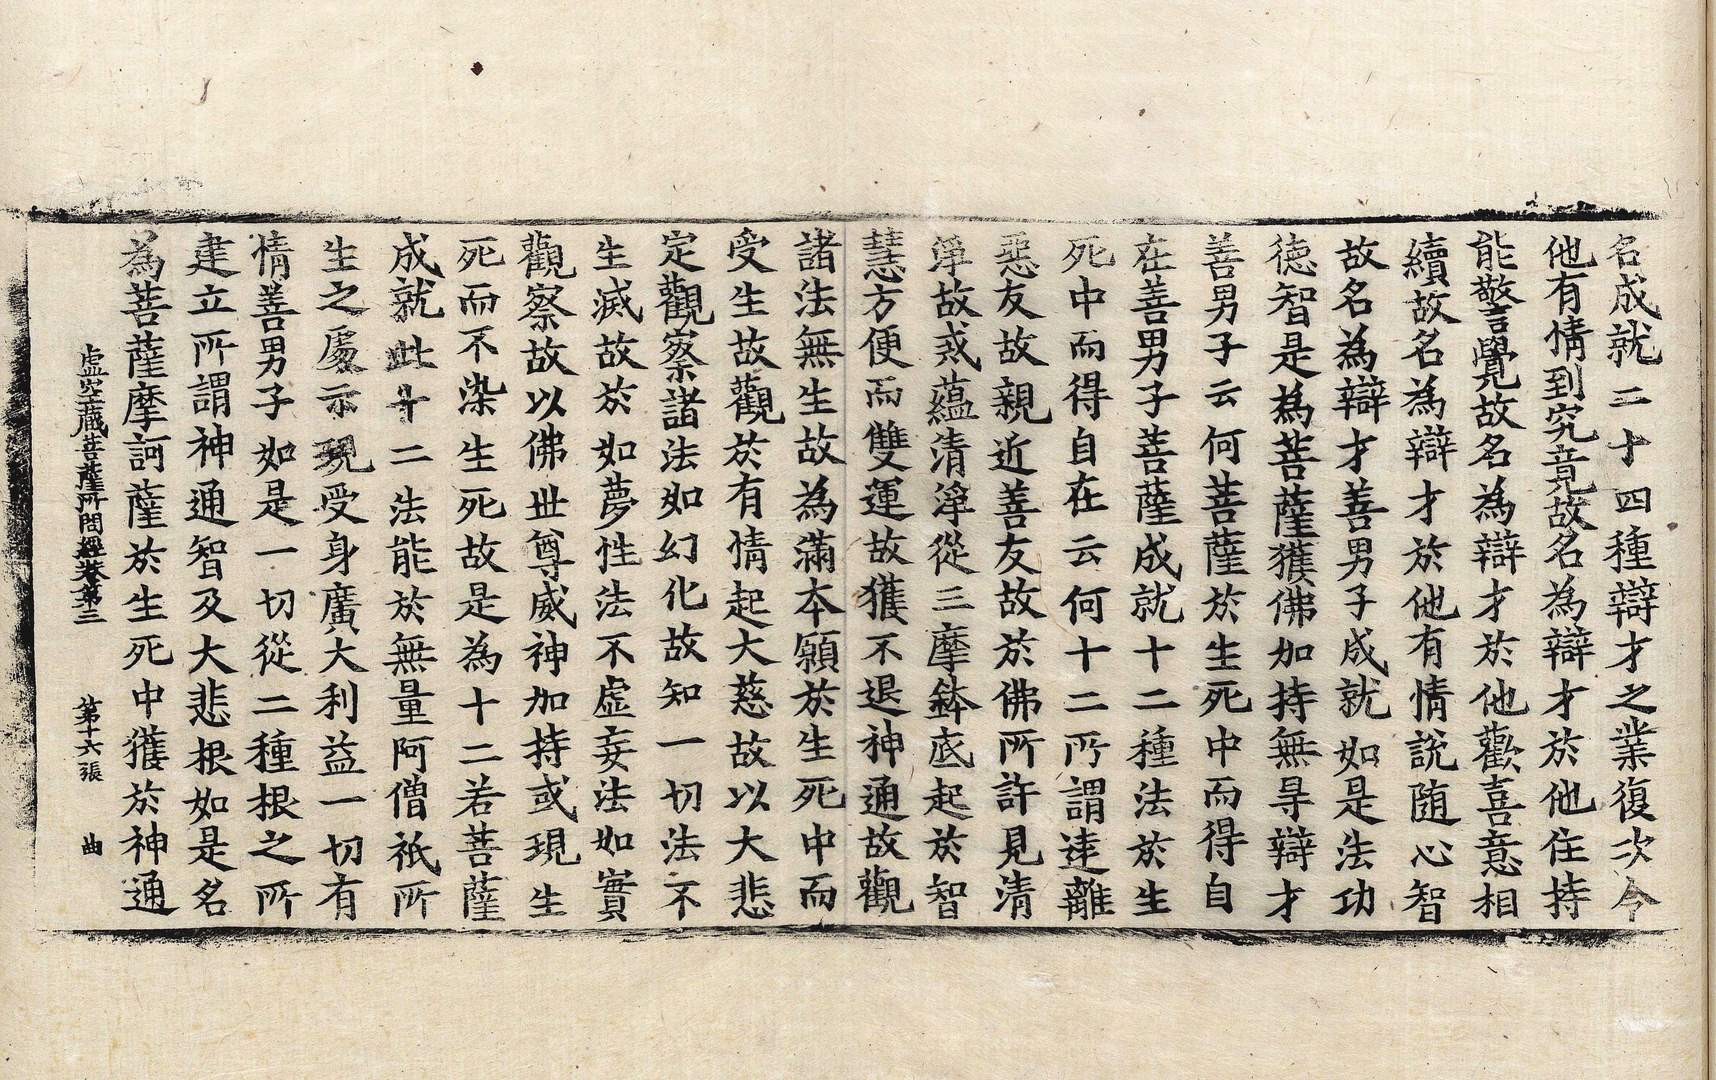 名成就二十四種辯才之業復次令
他有情到究竟故名為辯才於他住持
能警覺故名為辯才於他歡喜意相
續故名為辯才於他有情說随心智
故名為辯才善男子成就如是法功
德智是為菩薩獲佛加持無㝵辯才
善男子云何菩薩於生死中而得自
在善男子菩薩成就十二種法於生
死中而得自在云何十二所謂逺離
惡友故親近善友故於佛所許見清
淨故戒蘊清淨從三摩鉢底起於智
慧方便而雙運故獲不退神通故觀
諸法無生故為滿本願於生死中而
受生故觀於有情起大慈故以大悲
定觀察諸法如幻化故知一切法不
生滅故於如夢性法不虛妄法如實
觀察故以佛世尊威神加持或現生
死而不染生死故是為十二若菩薩
成就此十二法能於無量阿僧祇所
生之處示現受身廣大利益一切有
情善男子如是一切從二種根之所
建立所謂神通智及大悲根如是名
為菩薩摩訶薩於生死中獲於神通
虛空藏菩薩所問經卷第三 第十六張 曲